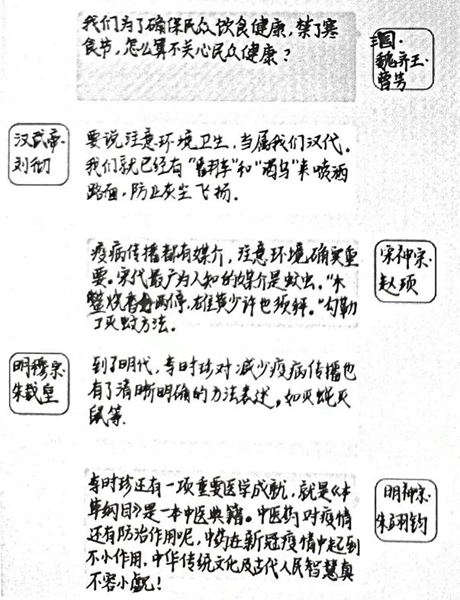 我们为了确保民众饮食健康，禁了寒
食节，怎么算不关心民众健康？
三国·
魏齐王·
曹芳
汉武帝·
刘彻
要说注意环境卫生，当属我们汉代。
我们就已经有“翻车”和“渴乌”来喷洒
路面，防止灰尘飞扬。
疫病传播都有媒介，注意环境确实重
要。宋代最广为人知的媒介是蚊虫。“木
鳖烧香分两停，雄黄少许也须秤。”勾勒
了灭蚊方法。
宋神宗·
赵顼
明穆宗·
朱载垕
到了明代，李时珍对减少疫病传播也
有了清晰明确的方法表述，如灭蝇灭
鼠等.
李时珍还有一项重要医学成就，就是《本
草纲目》是一本中医典籍。中医药对疫情
还有防治作用呢，中药在新冠疫情中起到
不小作用，中华传统文化及古代人民智慧真
不容小觑！
明神宗·
朱翊钧